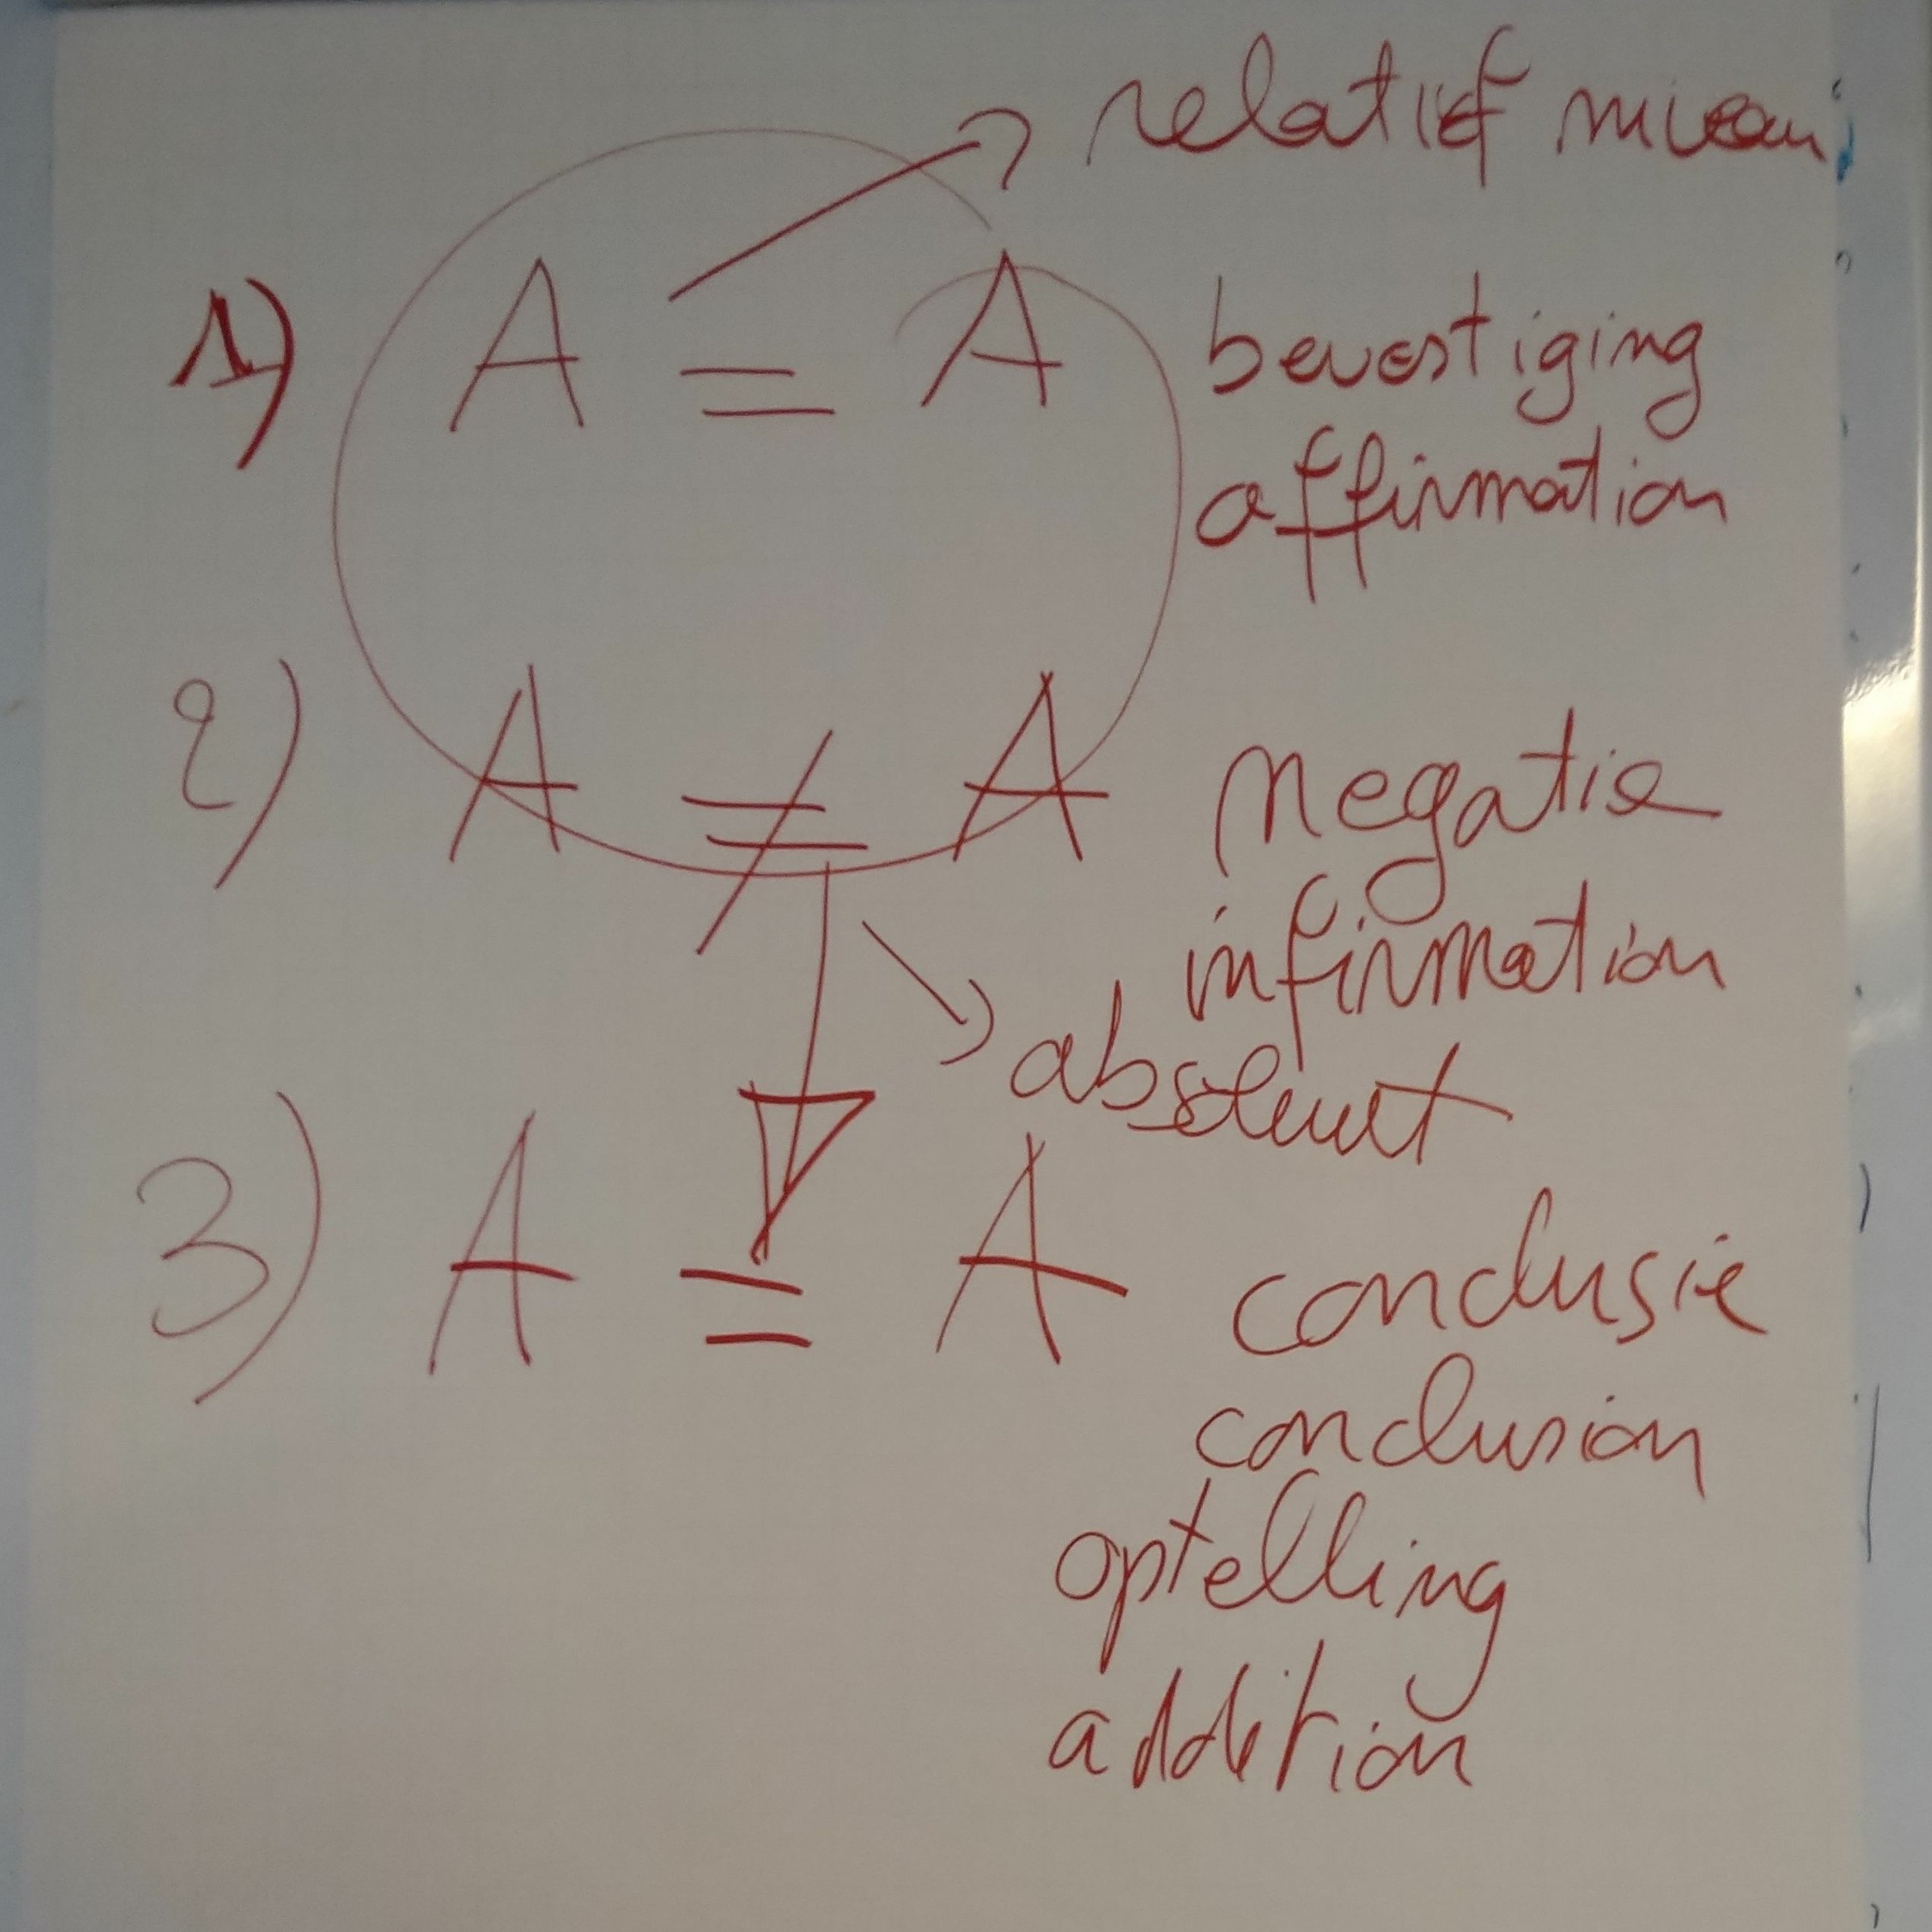 relatief niveau
1) A = A bevestiging
affirmation
2) A ≠ A negatie
infirmation
absoluut
3) A = A conclusie
conclusion
optelling
addition